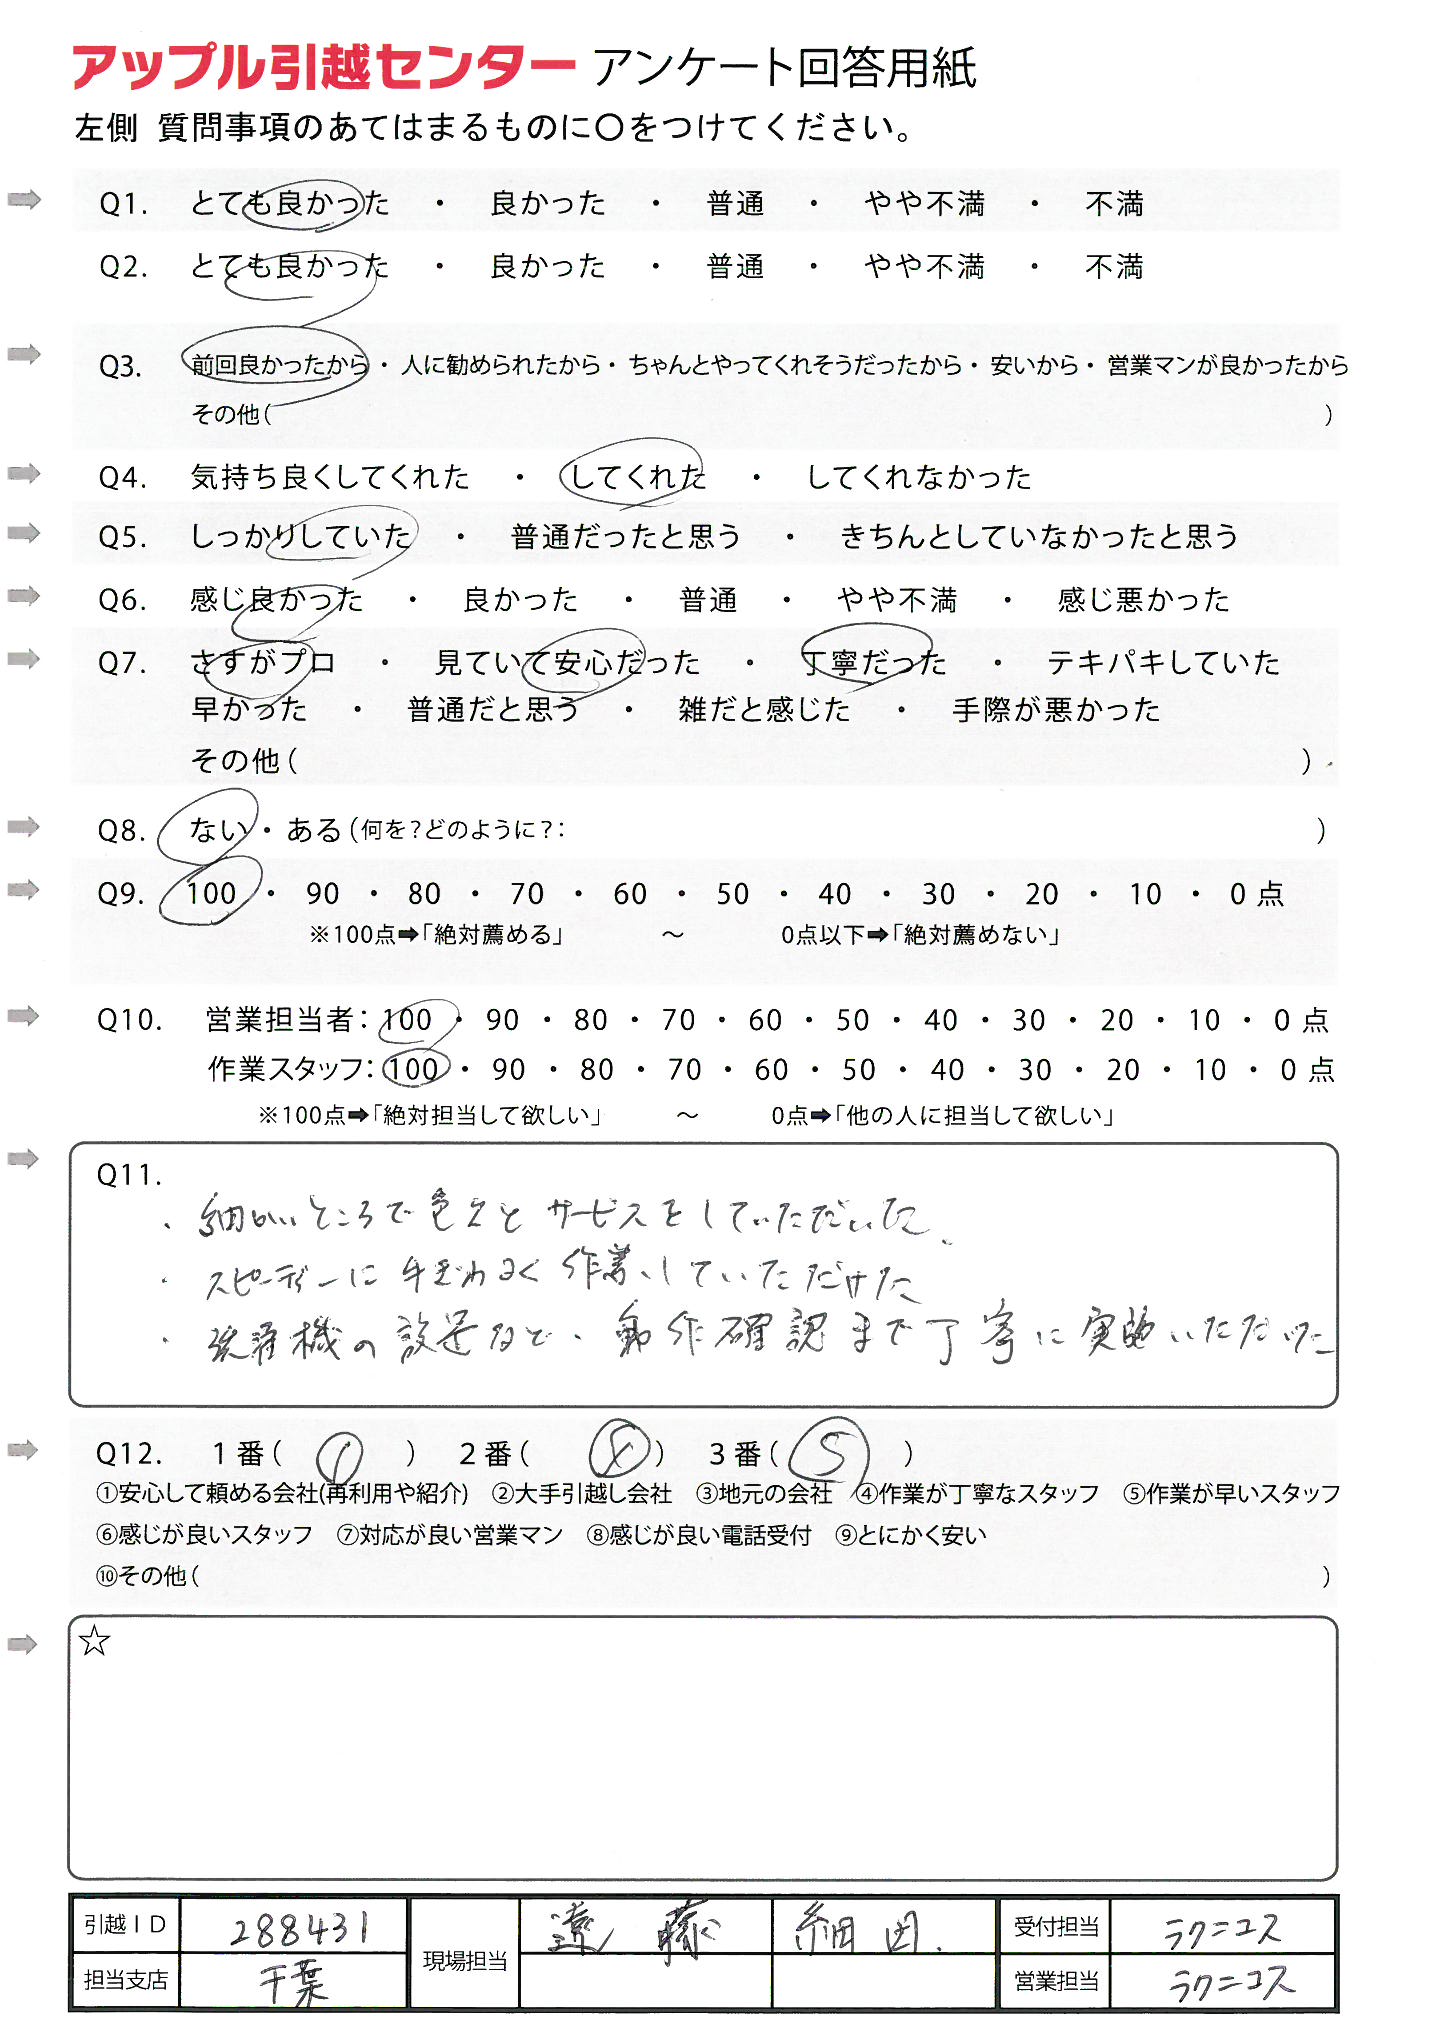 アップル引越センター アンケート回答用紙
左側 質問事項のあてはまるものに○をつけてください。
Q1. とても良かった ・ 良かった ・ 普通 ・ やや不満 ・ 不満
Q2. とても良かった ・ 良かった ・ 普通 ・ やや不満 ・ 不満
Q3. 前回良かったから ・ 人に勧められたから ・ ちゃんとやってくれそうだったから ・ 安いから ・ 営業マンが良かったから
その他( )
Q4. 気持ち良くしてくれた ・ してくれた ・ してくれなかった
Q5. しっかりしていた ・ 普通だったと思う ・ きちんとしていなかったと思う
Q6. 感じ良かった ・ 良かった ・ 普通 ・ やや不満 ・ 感じ悪かった
Q7. さすがプロ ・ 見ていて安心だった ・ 丁寧だった ・ テキパキしていた
早かった ・ 普通だと思う ・ 雑だと感じた ・ 手際が悪かった
その他( )
Q8. ない ・ ある(何を?どのように?: )
Q9. 100 ・ 90 ・ 80 ・ 70 ・ 60 ・ 50 ・ 40 ・ 30 ・ 20 ・ 10 ・ 0 点
※100点➡「絶対薦める」 ～ 0点以下➡「絶対薦めない」
Q10. 営業担当者: 100 ・ 90 ・ 80 ・ 70 ・ 60 ・ 50 ・ 40 ・ 30 ・ 20 ・ 10 ・ 0 点
作業スタッフ: 100 ・ 90 ・ 80 ・ 70 ・ 60 ・ 50 ・ 40 ・ 30 ・ 20 ・ 10 ・ 0 点
※100点➡「絶対担当して欲しい」 ～ 0点➡「他の人に担当して欲しい」
Q11.
・細かいところで色々とサービスをしていただいた。
・スピーディーに手ぎわよく作業していただけた
・洗濯機の設置など、動作確認まで丁寧に実施いただいた
Q12. 1番( ① ) 2番( ④ ) 3番( ⑤ )
①安心して頼める会社(再利用や紹介) ②大手引越し会社 ③地元の会社 ④作業が丁寧なスタッフ ⑤作業が早いスタッフ
⑥感じが良いスタッフ ⑦対応が良い営業マン ⑧感じが良い電話受付 ⑨とにかく安い
⑩その他( )
☆
引越ID 288431 現場担当 遠藤 細田 受付担当 ラクニコス
担当支店 千葉 営業担当 ラクニコス